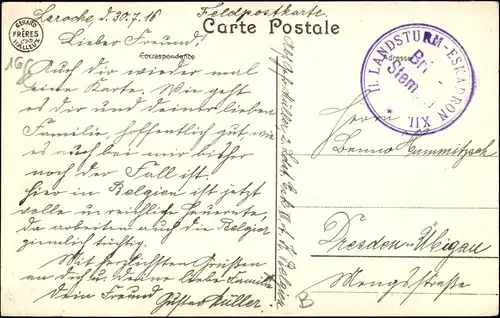 Laroche, d. 30.7.16
Feldpostkarte.
GERARD
FRÈRES
VALLEUX
Carte Postale
Correspondance
Adresse
II. LANDSTURM-ESKADRON XII
Bri
Stem
Lieber Freund!
Auch dir wieder mal
eine Karte. Wie geht
es dir und deiner lieben
Familie, hoffentlich gut, wie
es auch bei mir bisher
noch der Fall ist.
hier in Belgien ist jetzt
volle u. reichliche Heuernte,
da arbeiten auch die Belgier
ziemlich tüchtig.
Mit herzlichsten Grüßen
an dich u. deine liebe Familie
Dein Freund Gustav Müller.
Müller, 2. Ldst. Esk. XII A. K. Belgien
Herrn
Benno Hummitzsch
Dresden-Übigau
Mengsstraße